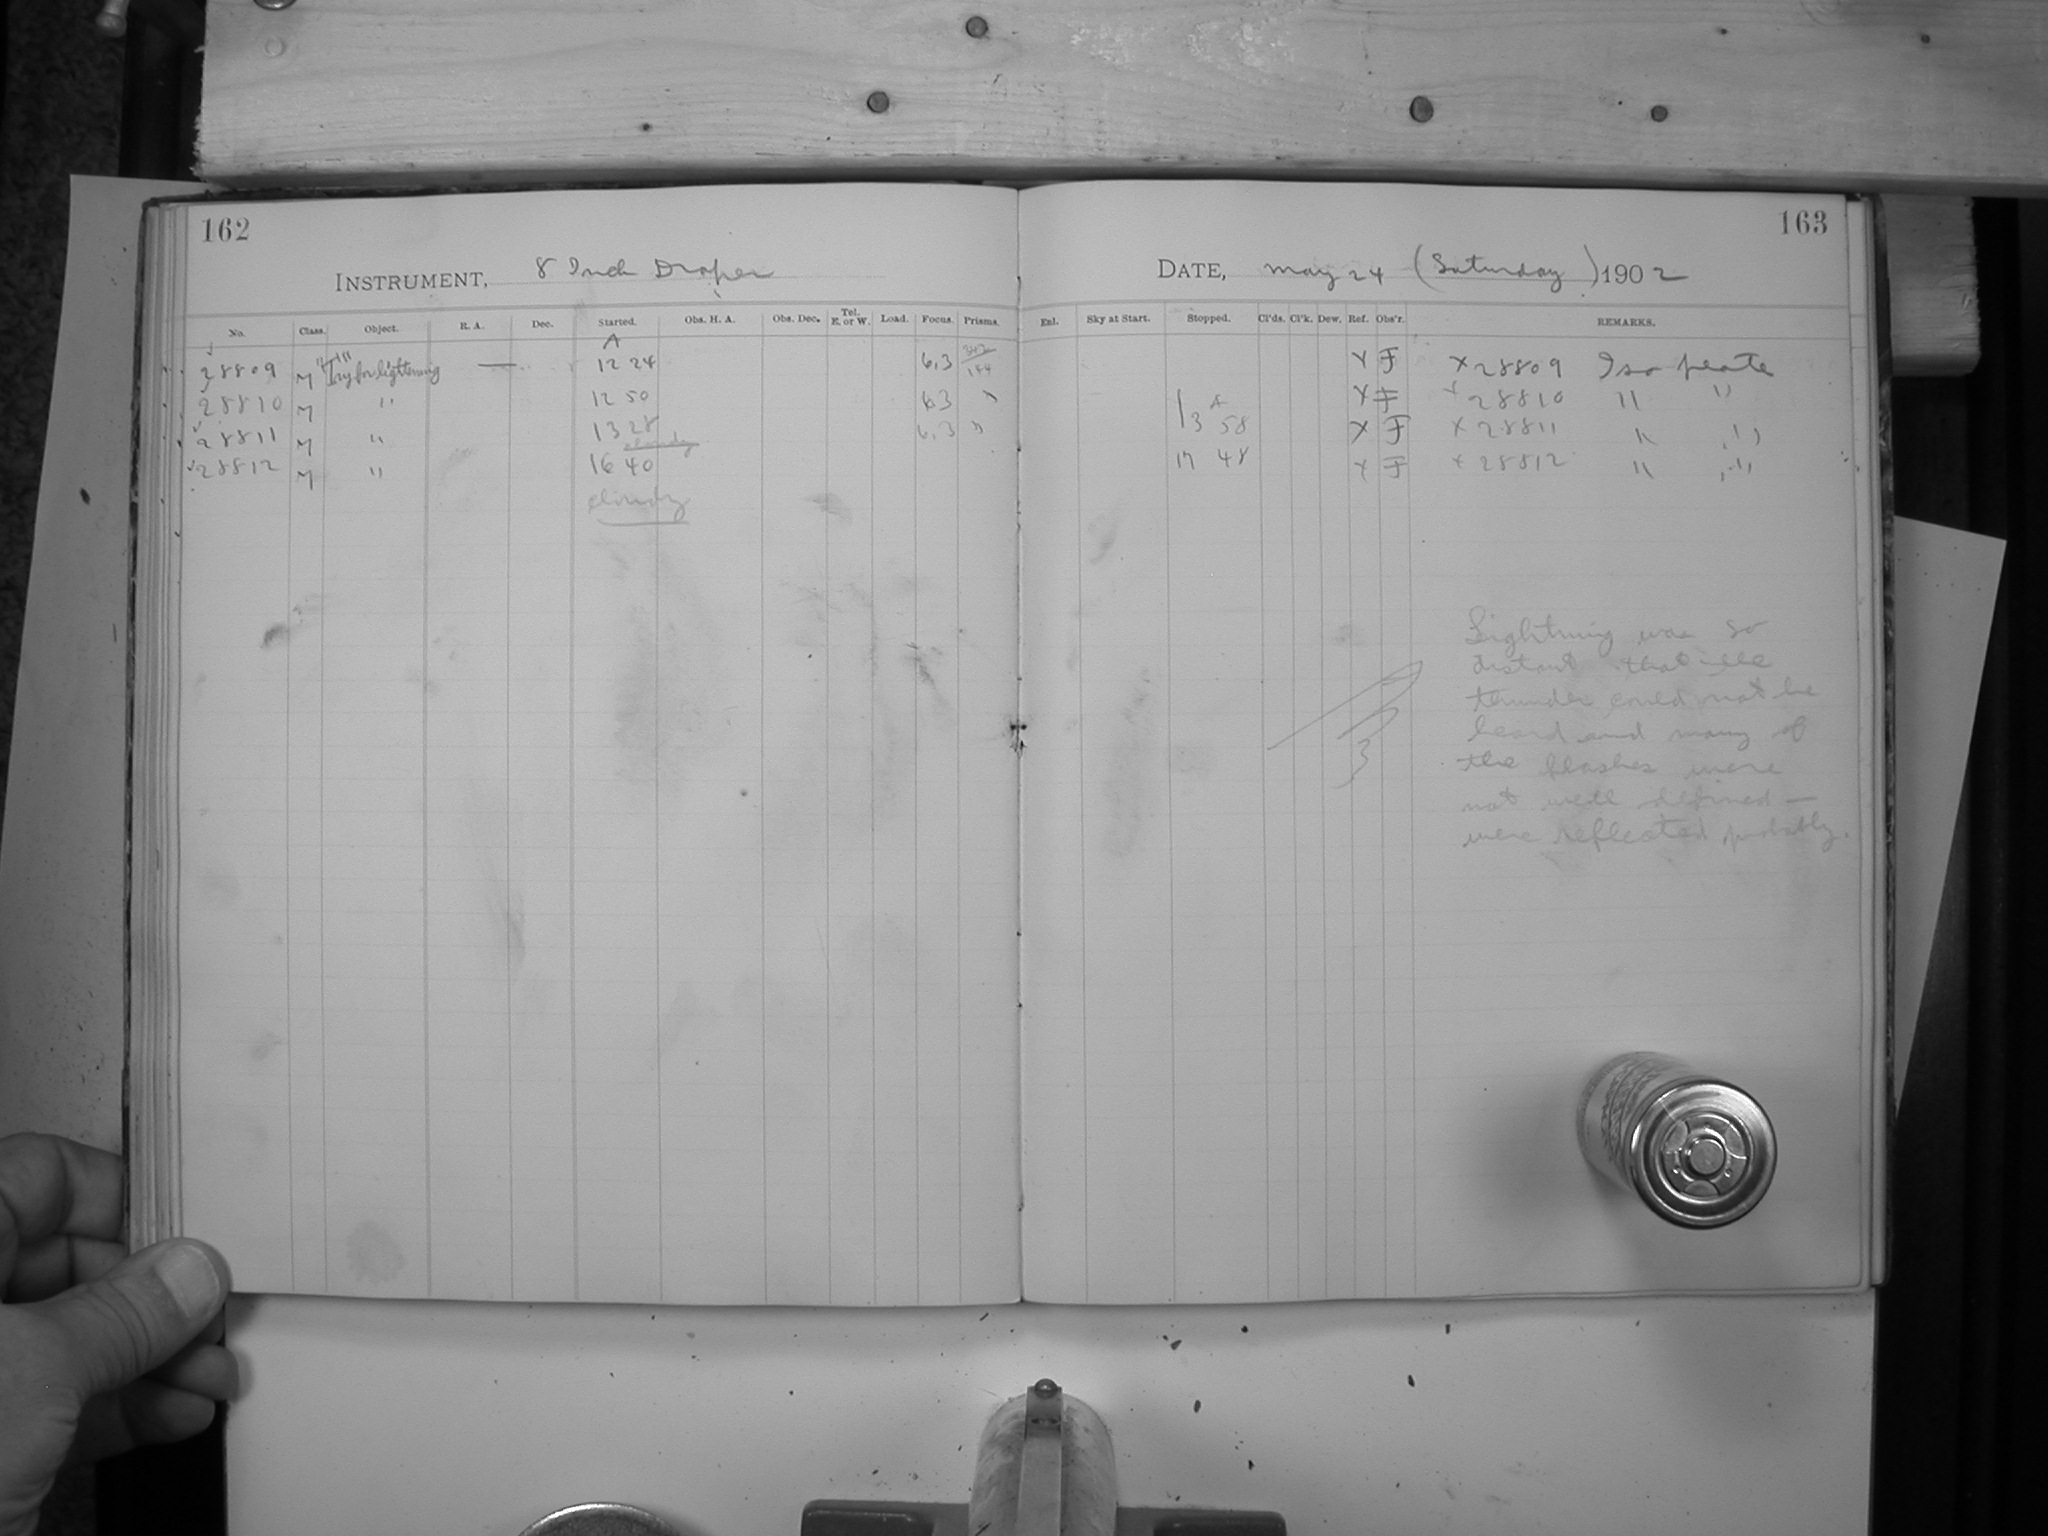 162
INSTRUMENT, 8 Inch Draper
No. Class. Object. R. A. Dec. Started. Obs. H. A. Obs. Dec. Tel. E. or W. Load. Focus. Prisms.
A
28809 M "Try for lightening" — 12 24 6,3
28810 M " 12 50 6.3 "
28811 M " 13 28 6,3 "
cloudy
28812 M " 16 40
cloudy
163
DATE, May 24 (Saturday) 1902
Enl. Sky at Start. Stopped. Cl'ds. Cl'k. Dew. Ref. Obs'r. REMARKS.
Y F X 28809 Iso plate
Y F X 28810 " "
13 58 Y F X 28811 " "
17 48 Y F X 28812 " "
Lightning was so
distant that the
thunder could not be
heard and many of
the flashes were
not well defined —
were reflected probably.